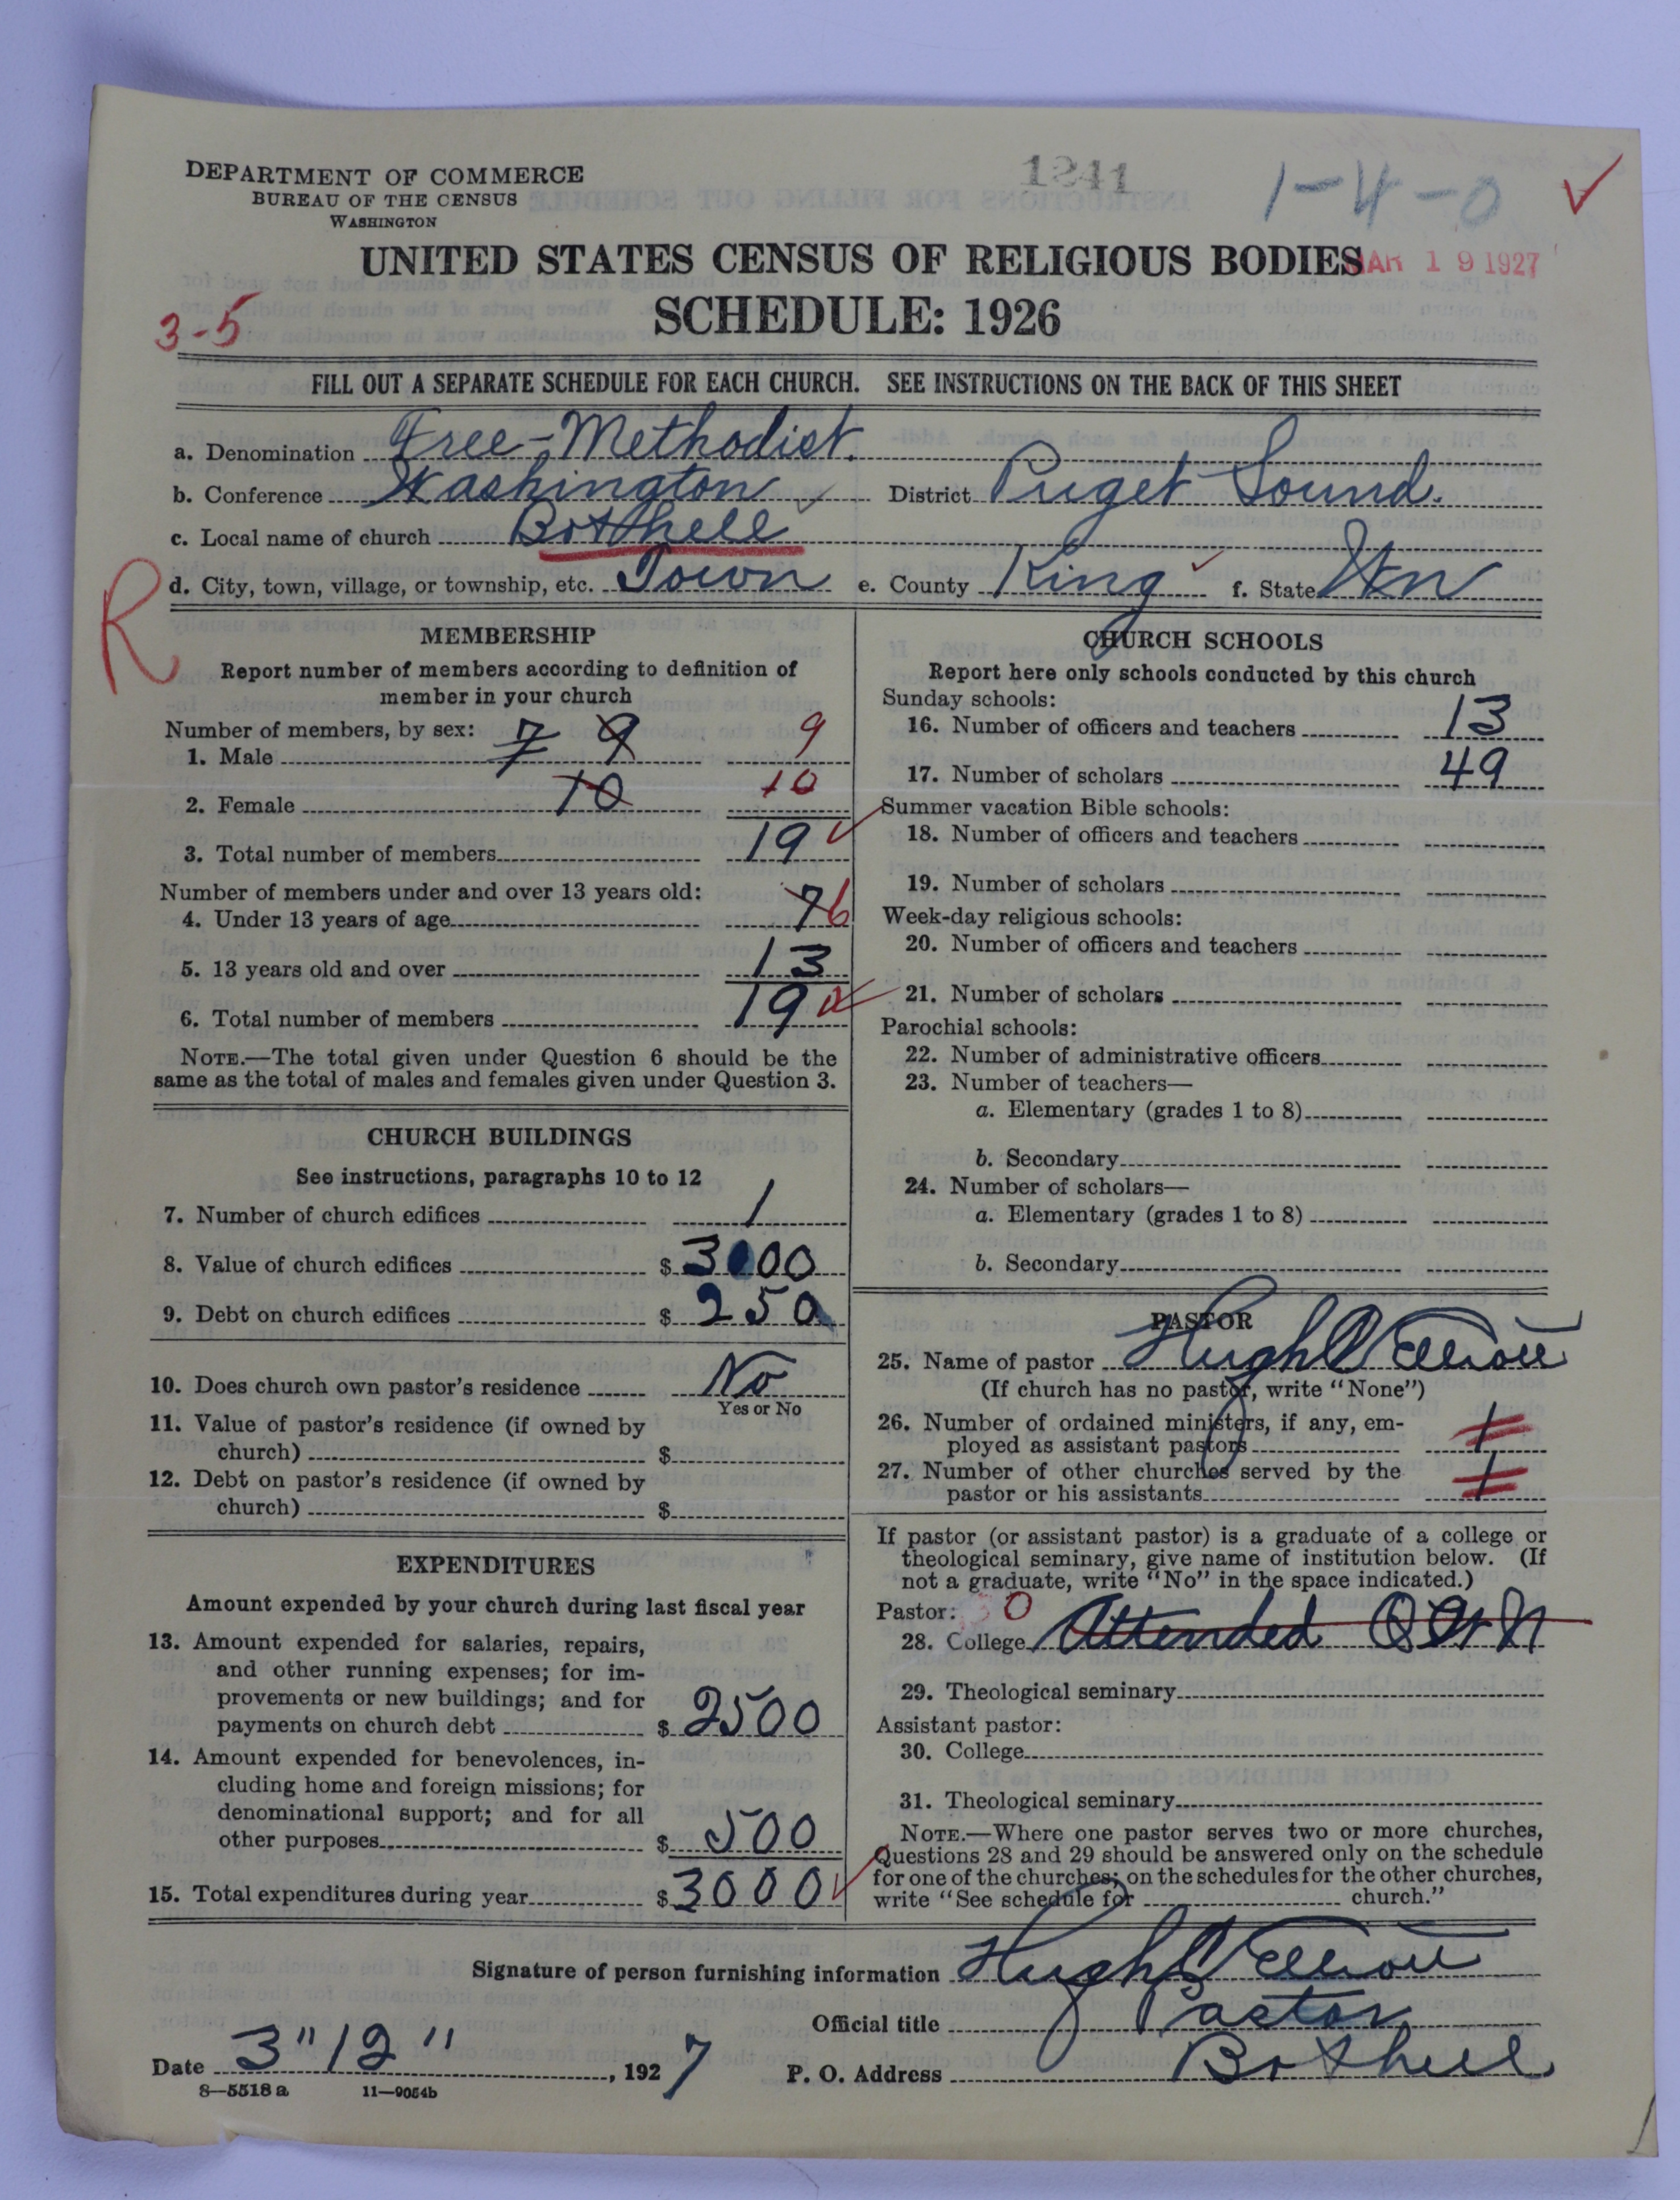 DEPARTMENT OF COMMERCE
BUREAU OF THE CENSUS
WASHINGTON
1241
1-4-0 ✓
UNITED STATES CENSUS OF RELIGIOUS BODIES
MAR 19 1927
SCHEDULE: 1926
3-5
FILL OUT A SEPARATE SCHEDULE FOR EACH CHURCH. SEE INSTRUCTIONS ON THE BACK OF THIS SHEET
a. Denomination Free-Methodist.
b. Conference Washington ✓ District Puget Sound.
c. Local name of church Bothell ✓
d. City, town, village, or township, etc. Town e. County King ✓ f. State Wn
R
MEMBERSHIP
Report number of members according to definition of
member in your church
Number of members, by sex:
1. Male 7 9 9
2. Female 10 10
3. Total number of members 19 ✓
Number of members under and over 13 years old:
4. Under 13 years of age 7 6
5. 13 years old and over 13
6. Total number of members 19 ✓
NOTE.—The total given under Question 6 should be the
same as the total of males and females given under Question 3.
CHURCH BUILDINGS
See instructions, paragraphs 10 to 12
7. Number of church edifices 1
8. Value of church edifices $ 3000
9. Debt on church edifices $ 250
10. Does church own pastor's residence No
Yes or No
11. Value of pastor's residence (if owned by
church) $
12. Debt on pastor's residence (if owned by
church) $
EXPENDITURES
Amount expended by your church during last fiscal year
13. Amount expended for salaries, repairs,
and other running expenses; for im-
provements or new buildings; and for
payments on church debt $ 2500
14. Amount expended for benevolences, in-
cluding home and foreign missions; for
denominational support; and for all
other purposes $ 500
15. Total expenditures during year $ 3000 ✓
CHURCH SCHOOLS
Report here only schools conducted by this church
Sunday schools:
16. Number of officers and teachers 13
17. Number of scholars 49
Summer vacation Bible schools:
18. Number of officers and teachers
19. Number of scholars
Week-day religious schools:
20. Number of officers and teachers
21. Number of scholars
Parochial schools:
22. Number of administrative officers
23. Number of teachers—
a. Elementary (grades 1 to 8)
b. Secondary
24. Number of scholars—
a. Elementary (grades 1 to 8)
b. Secondary
PASTOR
25. Name of pastor Hugh Elliott
(If church has no pastor, write "None")
26. Number of ordained ministers, if any, em-
ployed as assistant pastors 1
27. Number of other churches served by the
pastor or his assistants 1
If pastor (or assistant pastor) is a graduate of a college or
theological seminary, give name of institution below. (If
not a graduate, write "No" in the space indicated.)
Pastor: 0
28. College Attended
29. Theological seminary
Assistant pastor:
30. College
31. Theological seminary
NOTE.—Where one pastor serves two or more churches,
Questions 28 and 29 should be answered only on the schedule
for one of the churches; on the schedules for the other churches,
write "See schedule for church."
Signature of person furnishing information Hugh Elliott
Official title Pastor
Date 3"12", 1927 P. O. Address Bothell
8—5518 a 11—9054b